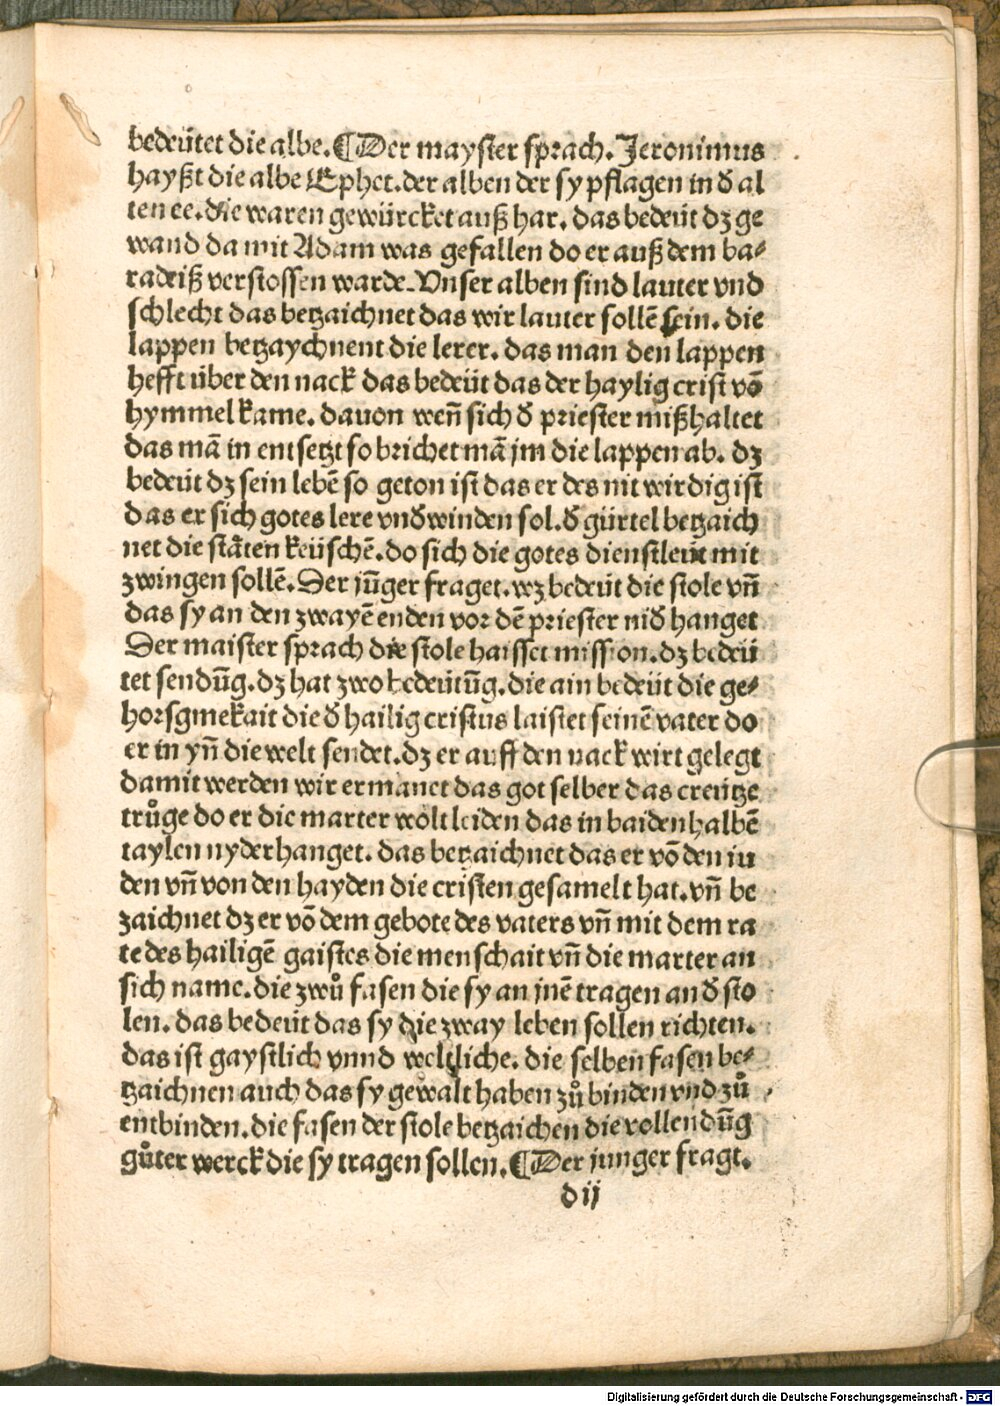 bedeütet die albe. ¶ Der mayster sprach. Jeronimus
hayßt die albe Ephet. der alben der sy pflagen in đ al
ten ee. die waren gewürcket auß har. das bedeüt dz ge
wand da mit Adam was gefallen do er auß dem ba⸗
radeiß verstossen warde. Vnser alben sind lauter vnd
schlecht das betzaichnet das wir lauter sollē sein. die
lappen betzaychnent die lerer. das man den lappen
hefft über den nack das bedeüt das der haylig crist vō
hymmel kame. dauon weñ sich đ priester mißhaltet
das mā in entsetzt so brichet mā jm die lappen ab. dz
bedeüt dz sein lebē so geton ist das er des nit wirdig ist
das er sich gotes lere vnđwinden sol. đ gürtel betzaich
net die stäten keüschē. do sich die gotes dienstleüt mit
zwingen sollē. Der jūger fraget. wz bedeüt die stole vñ
das sy an den zwayē enden vor dē priester niđ hanget
Der maister sprach die stole haisset mission. dz bedeü
tet sendūg. dz hat zwo bedeütūg. die ain bedeüt die ge⸗
horsgmekait die đ hailig cristus laistet seinē vater do
er in yñ die welt sendet. dz er auff den nack wirt gelegt
damit werden wir ermanet das got selber das creütze
trůge do er die marter wolt leiden das in baiden halbē
taylen nyder hanget. das betzaichnet das er vō den iu
den vñ von den hayden die cristen gesamelt hat. vñ be
zaichnet dz er vō dem gebote des vaters vñ mit dem ra
te des hailigē gaistes die menschait vñ die marter an
sich name. die zwů fasen die sy an jnē tragen an đ sto
len. das bedeüt das sy die zway leben sollen richten.
das ist gaystlich vnnd weltliche. die selben fasen be⸗
tzaichnen auch das sy gewalt haben zů binden vnd zů
entbinden. die fasen der stole betzaichen die vollendūg
gůter werck die sy tragen sollen. ¶ Der junger fragt.
d ij
Digitalisierung gefördert durch die Deutsche Forschungsgemeinschaft - DFG